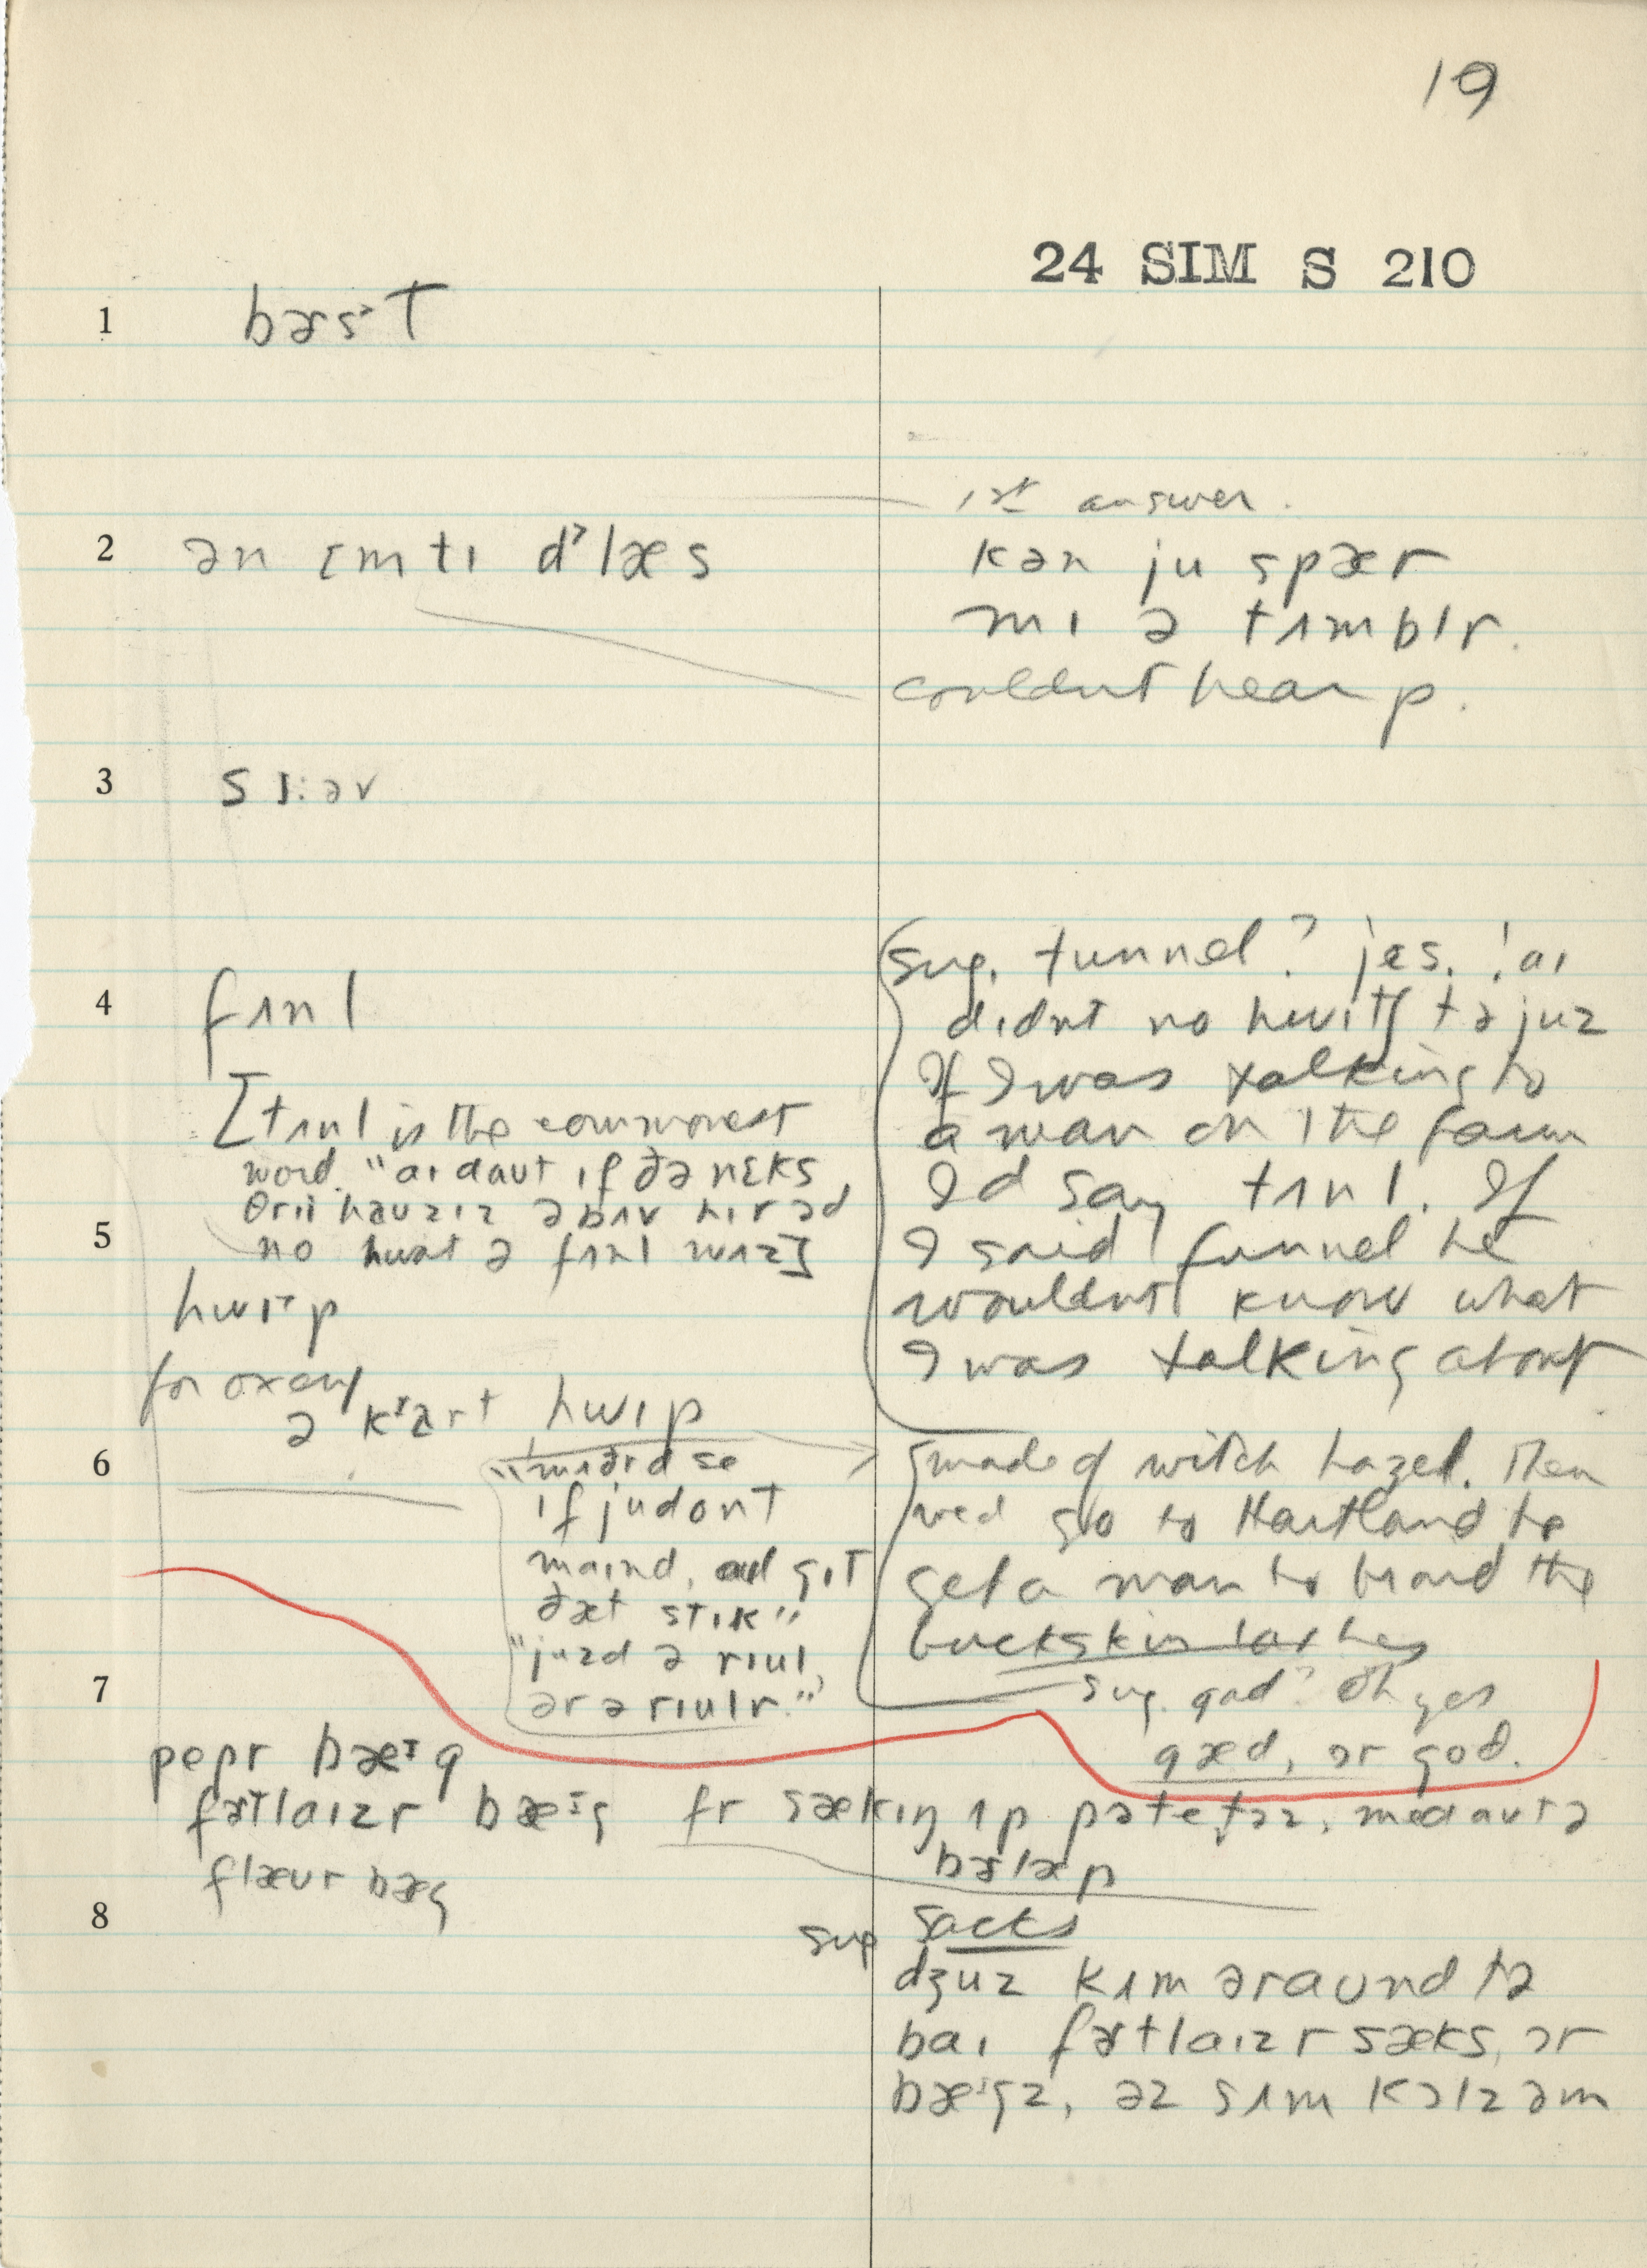 19
24 SIM S 210
1 bɚs˃T
2 ən ɛmtɪ d˃læs
1st answer.
kən ju spær
mɪ ə tʌmblr.
couldn't hear p.
3 slɪ:əv
4 fʌnl
[tʌnl is the commonest
word. "aɪ daut ɪf ðə nɛks
θrii hauzɪz əbʌv hɪr əd
5 no hwat ə fʌnl wʌz]
sug. tunnel? jɛs. !aɪ
dɪdnt no hwɪtʃ tə juz
If I was talking to
a man on the farm
I'd say tʌnl. If
I said funnel he
wouldn't know what
I was talking about
hwɪp
for
ə kart hwɪp
6
if ju dont
maɪnd, aɪl gɪt
ðæt stɪk"
"juzd ə rɪul,
ər ə rɪulr."
made of witch hazel. Then
we'd go to Hartland to
get a man to braid the
buckskin lashes
sug. gad? Oh yes
gæd, ɔr god.
7
pepr bæɪg
fɚtlaɪzr bæɪg fr sækɪŋ ʌp pəteɾəz, med aut ə
bɚlæp
flæur bæg
8
sug sacks
dʒuz kʌm əraund tə
baɪ fɚtlaɪzr sæks, ɔr
bæɪgz, əz sʌm kɔlz əm